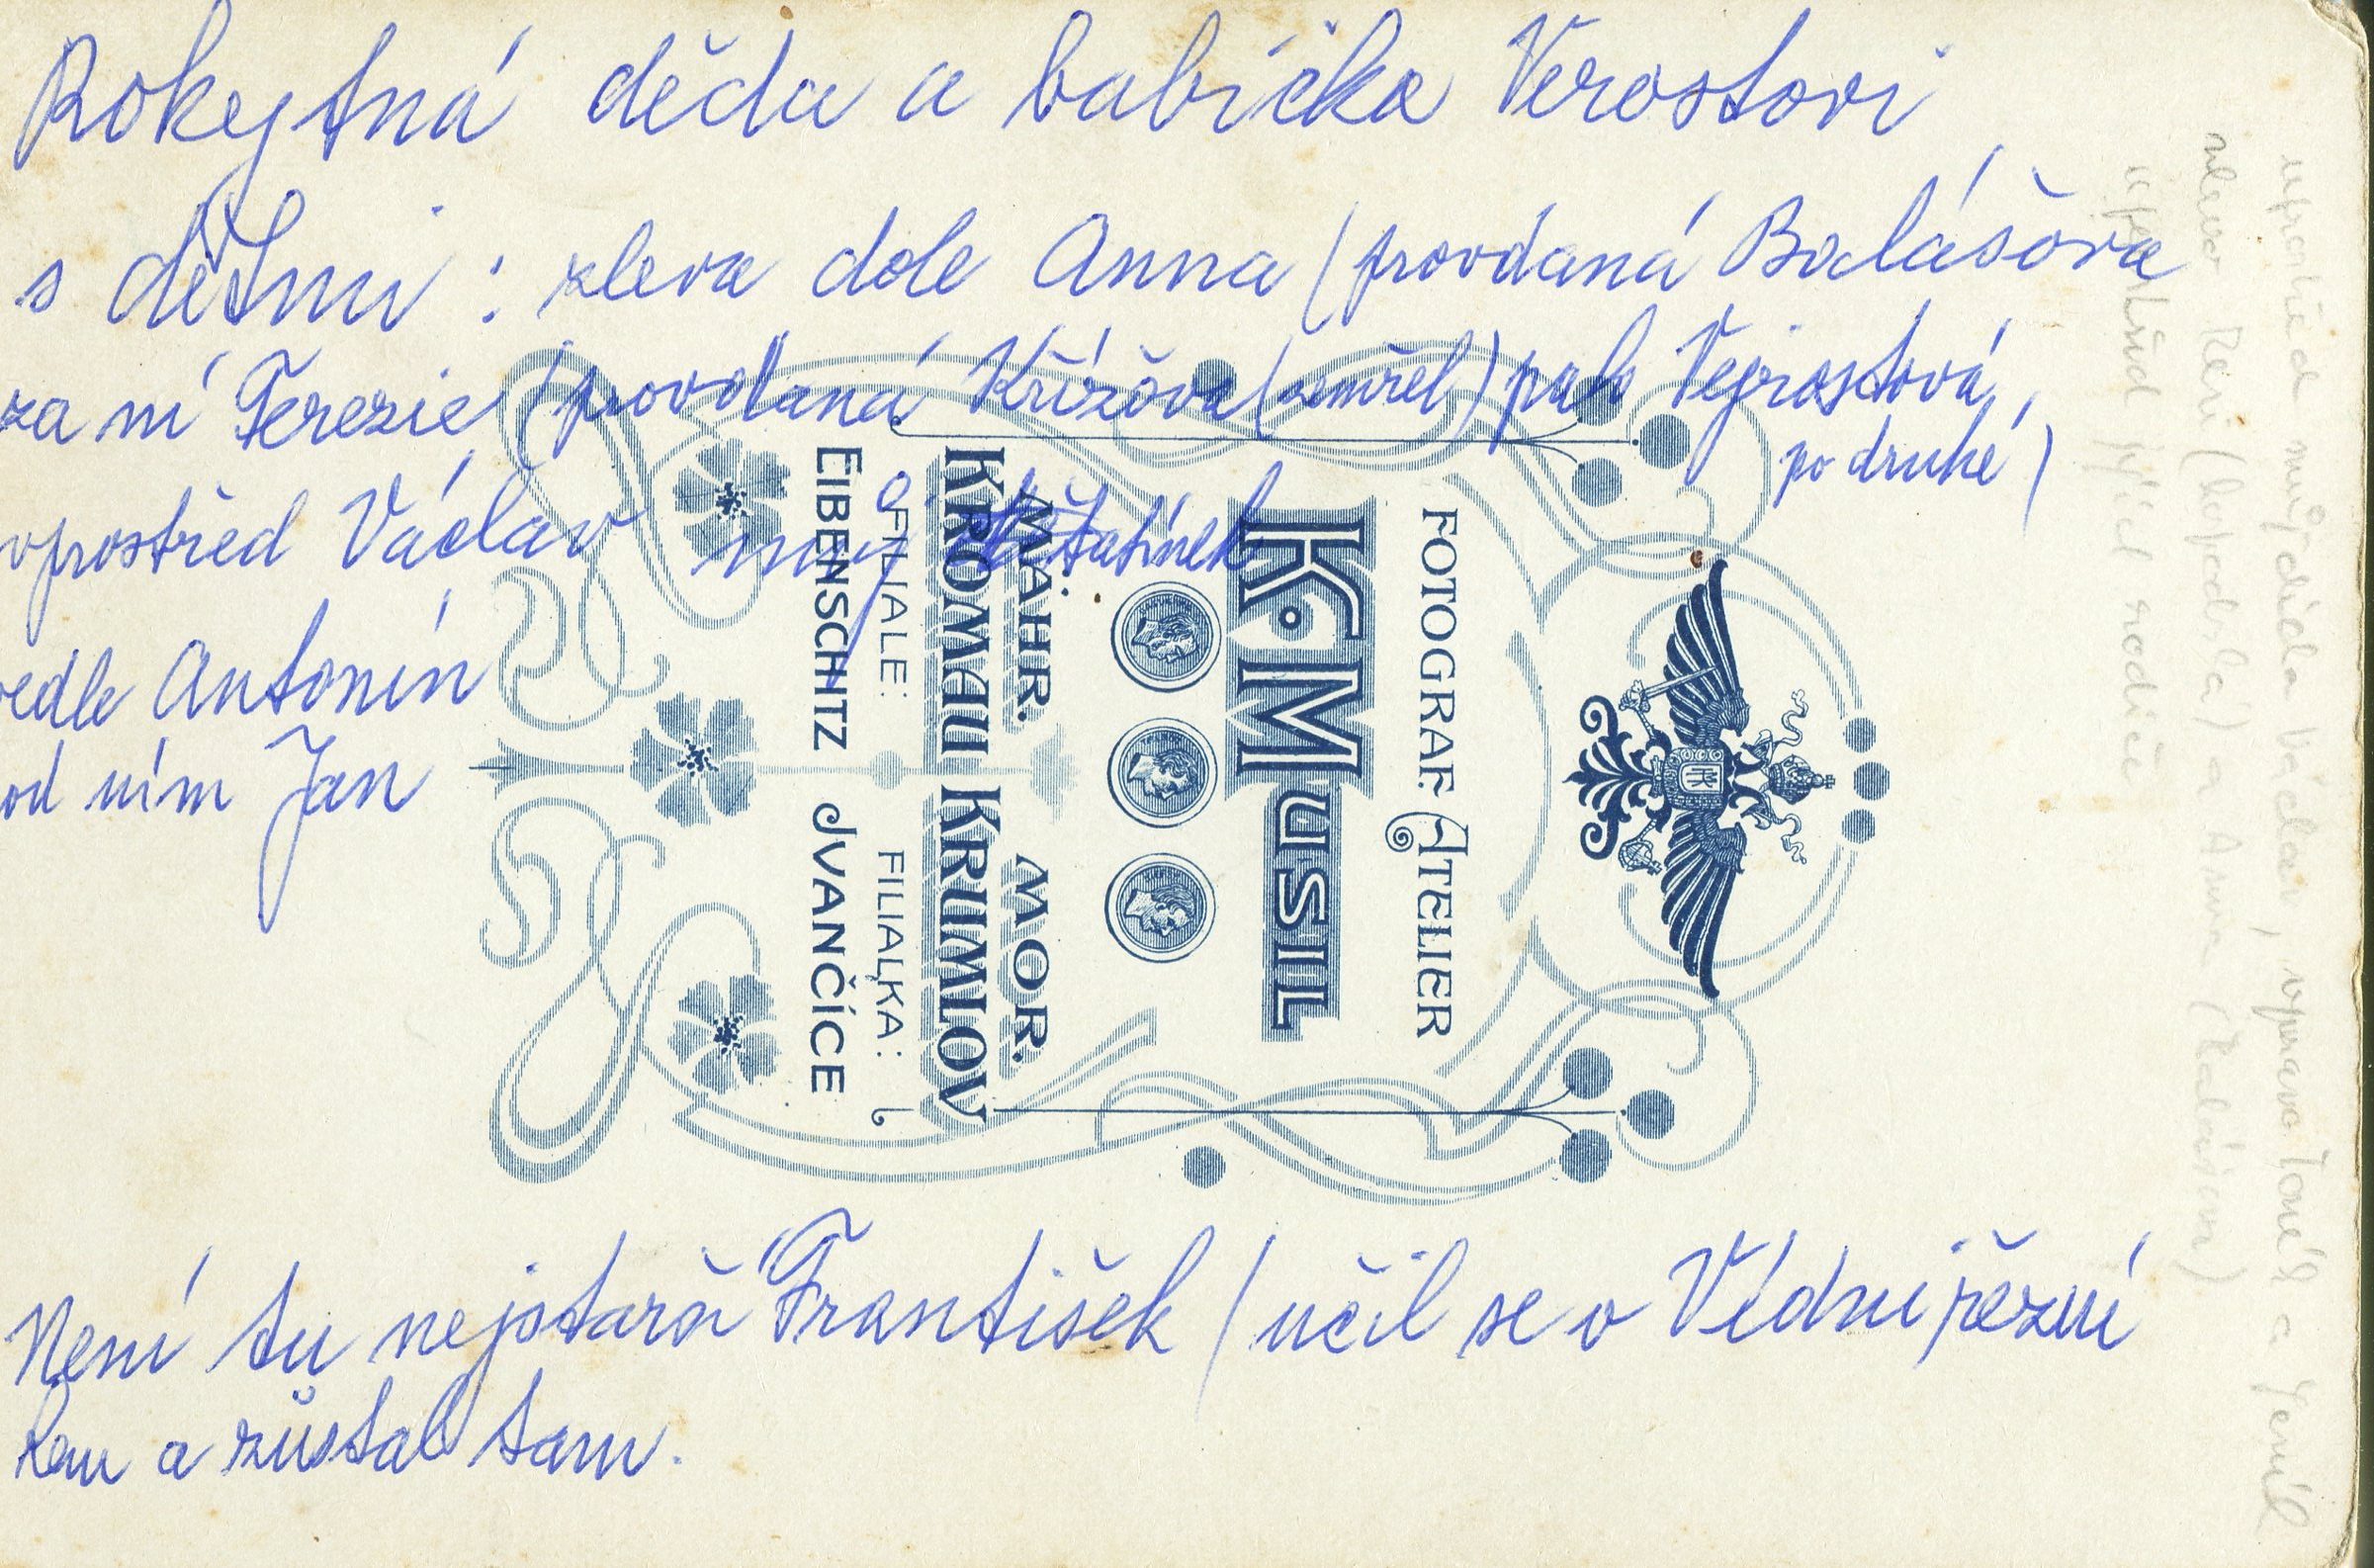 Rokytná děda a babička Verostovi
s dětmi : zleva dole Anna (provdaná Balášova
za ní Terezie (provdaná Křížova (zemřel) pak Vejrostová
po druhé)
vprostřed Václav můj tatínek
vedle Antonín
od ním Jan
Není tu nejstarší František (učil se v Vídni řezní
kem a zůstal tam.
FOTOGRAF. ATELIER
K. MUSIL
MÄHR. MOR.
KROMAU KRUMLOV
FILIALE: FILIALKA:
EIBENSCHITZ IVANČICE
uprostřed můj děda Václav, vpravo Toník a Jeník
vlevo Rezi (hospodská) a Anna (Balášova)
uprostřed jejich rodiče